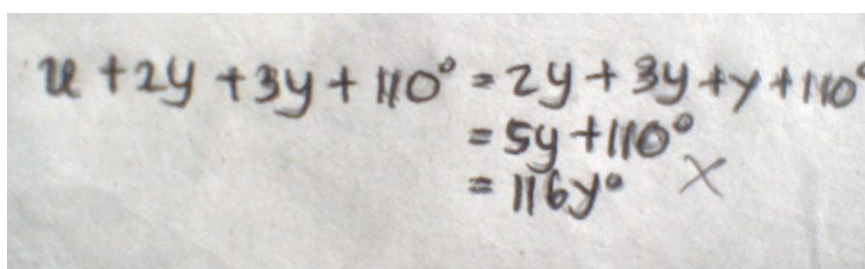 x + 2y + 3y + 110° = 2y + 3y + y + 110°
= 5y + 110°
= 116y° ×